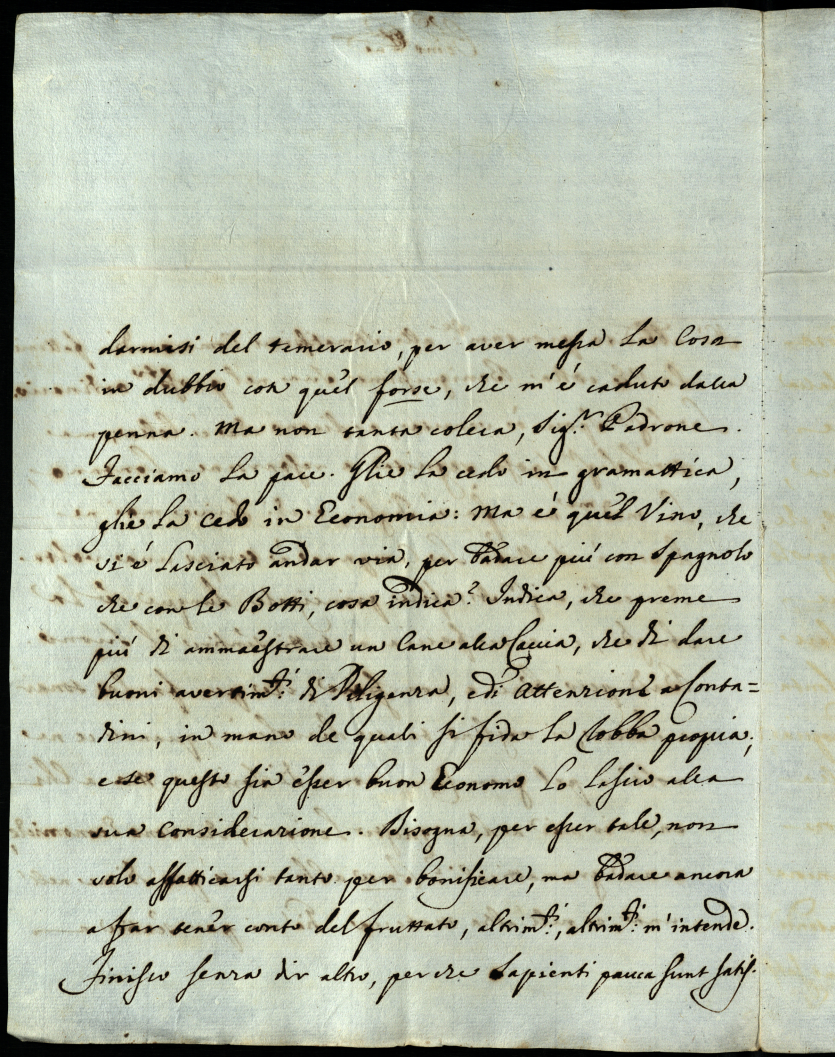 darmisi del temerario, per aver messa la Cosa
in dubbio con quel forse, che m'é caduto dalla
penna. Ma non tanta colera, Sig.r Padrone.
Facciamo la pace. Glie la cedo in gramattica,
glie la cedo in Economia: Ma é quel Vino, che
si é lasciato andar via, per badare piú con Spagnolo
che con le Botti, cosa indica? Indica, che preme
piú di ammaestrare un Cane alla Caccia, che di dare
buoni avertim.ti di Diligenza, e di Attenzione a Conta=
dini, in mano de quali si fida la Robba propria;
e se questo sia esser buon Economo lo lascio alla
sua Considerazione. Bisogna, per esser tale, non
solo affatticarsi tanto per bonificare, ma badare ancora
a far tener conto del fruttato, altrim.ti, altrim.ti m'intende.
Finisco senza dir altro, perche Sapienti pauca sunt satis.